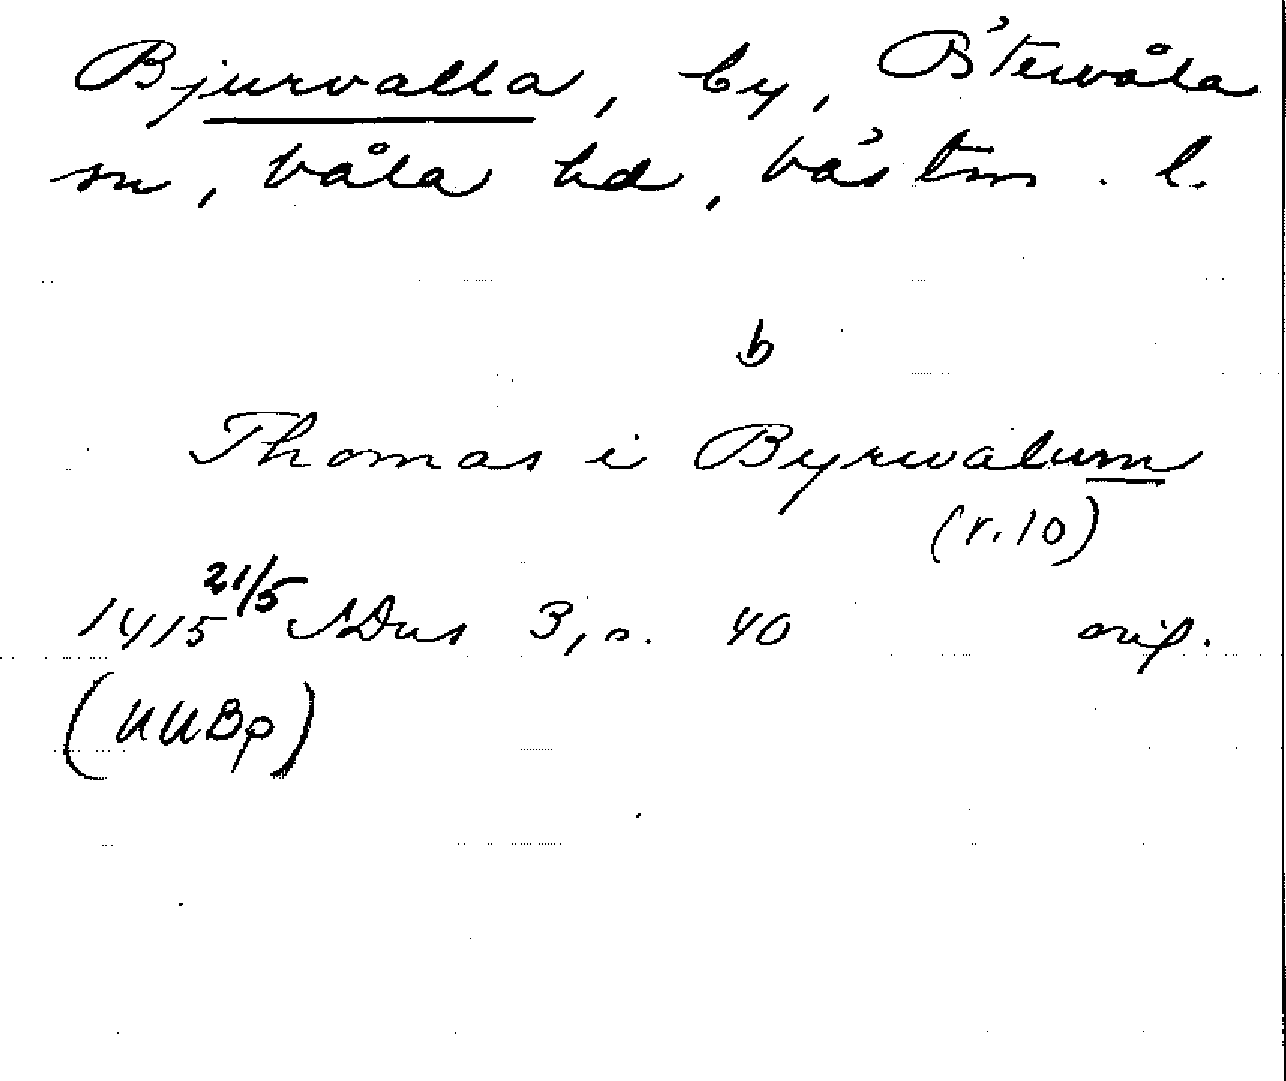 Bjurvalla, by, Östervåla
sn, Våla hd, Västm. l.
b
Thomas i Byrwalum
(r. 10)
1415 21/5 SDns 3, s. 40 orig.
(UUBp)